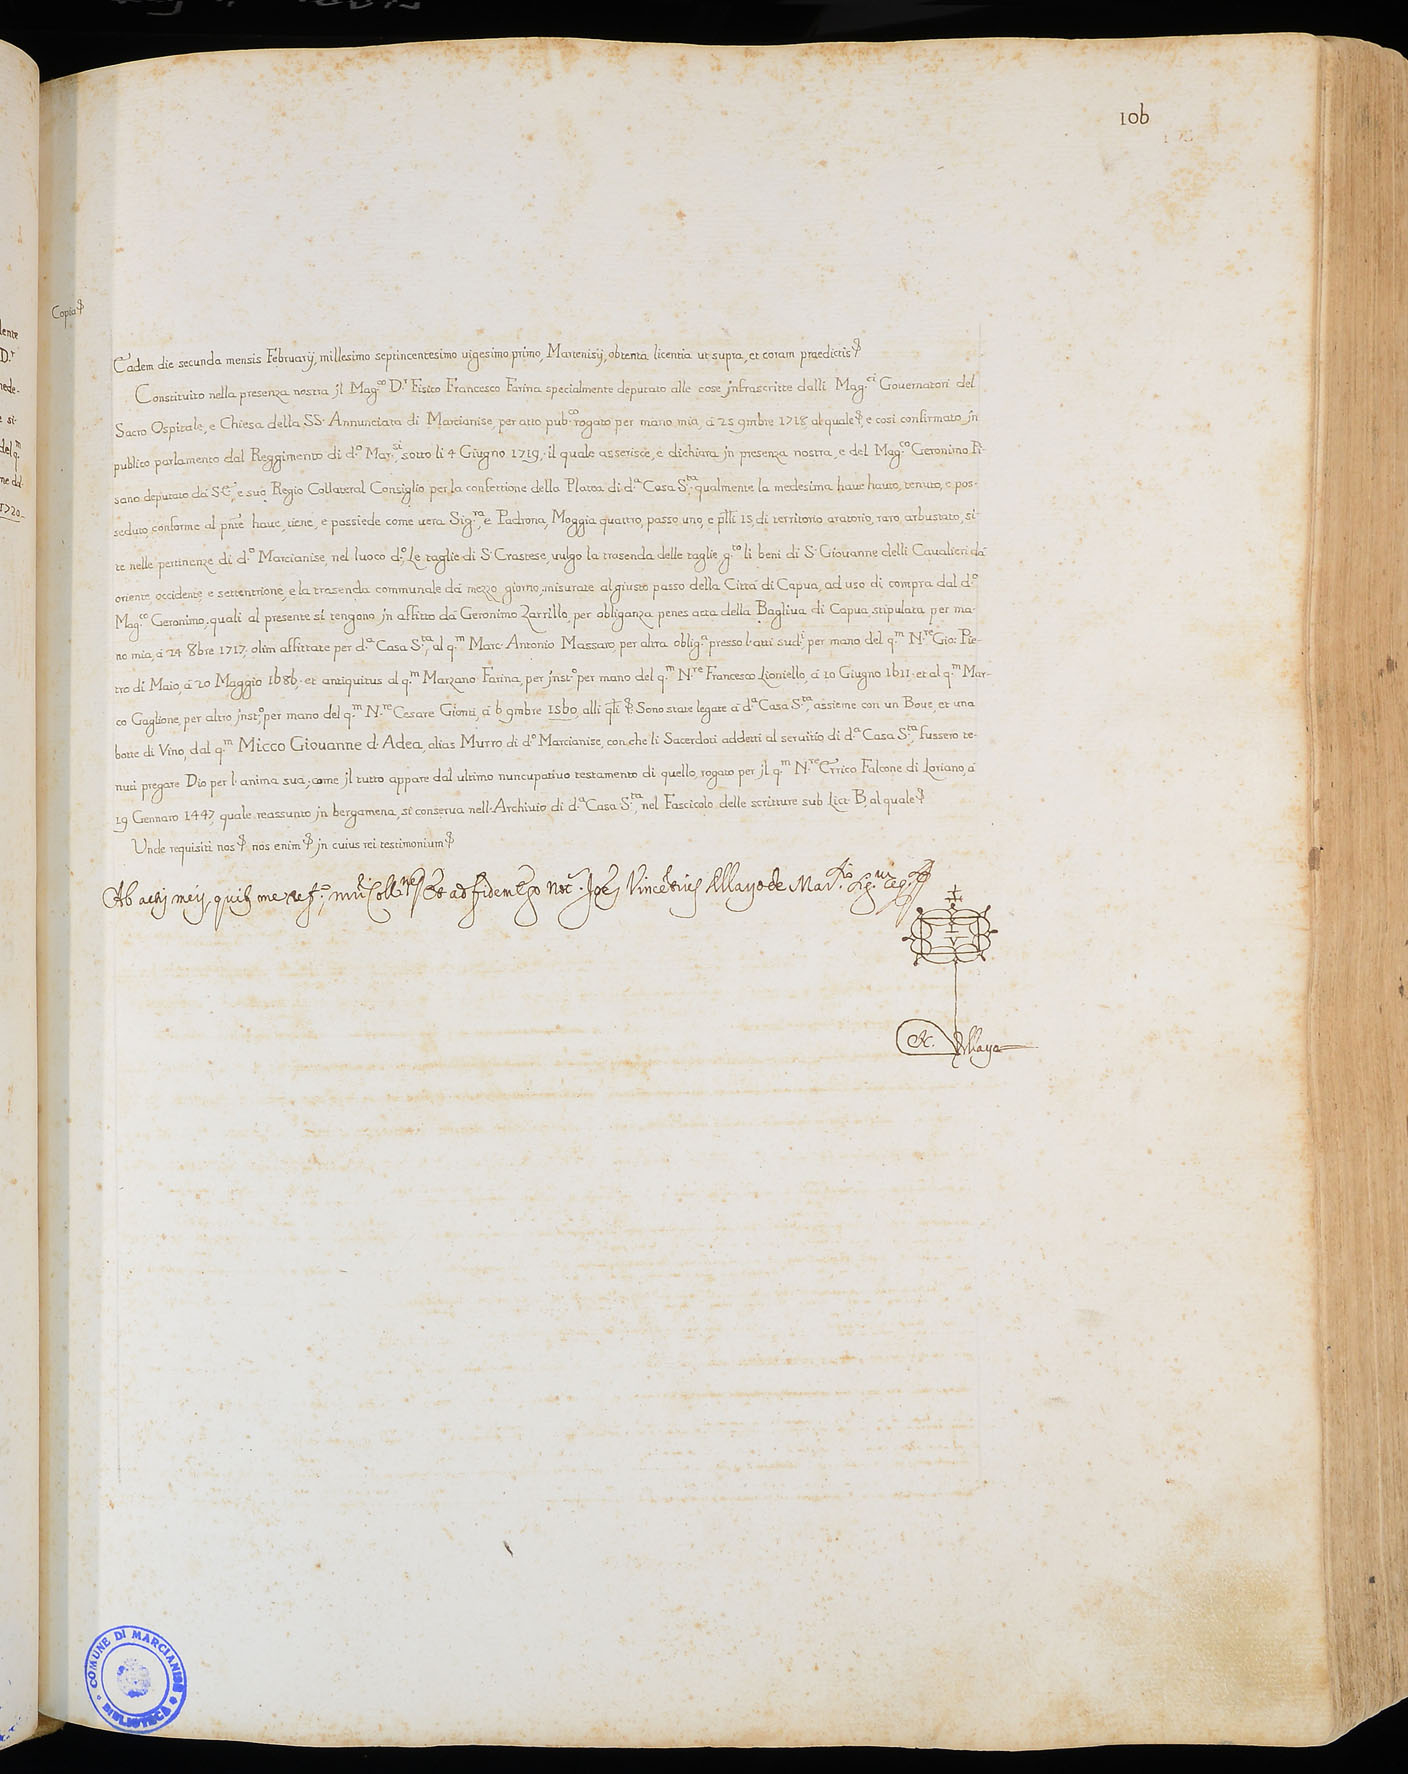 106
Copia
Eadem die secunda mensis Februarij, millesimo septincentesimo uigesimo primo, Martenisij, obtenta licentia ut supra, et coram praedictis
Constituito nella presenza nostra jl Mag.co D.r Fisico Francesco Farina specialmente deputato alle cose jnfrascritte dalli Mag.ci Gouernatori del
Sacro Ospitale, e Chiesa della SS. Annunciata di Marcianise, per atto pub.co rogato per mano mia, à 25 9mbre 1718, al quale, e così confirmato jn
publico parlamento dal Reggimento di d.o Mar.si, sotto li 4 Giugno 1719, il quale asserisce, e dichiara jn presenza nostra, e del Mag.co Geronimo Pi-
sano deputato da S.E., e suo Regio Collateral Consiglio per la confettione della Platea di d.a Casa S.ta, qualmente la medesima haue hauto, tenuto, e pos-
seduto, conforme al pnte haue, tiene, e possiede come uera Sig.ra, e Padrona, Moggia quattro, passo uno, e p̃lli 15, di territorio aratorio, raro, arbustato, si-
te nelle pertinenze di d.o Marcianise, nel luoco d.o, Le taglie di S. Crastese, uulgo la trasenda delle taglie g.to li beni di S. Giouanne delli Caualieri dà
oriente, occidente, e settentrione, e la trasenda communale dà mezzo giorno, misurate al giusto passo della Città di Capua, ad uso di compra dal d.o
Mag.co Geronimo, quali al presente si tengono jn affitto dà Geronimo Zarrillo, per obliganza penes acta della Bagliua di Capua, stipulata per ma-
no mia, à 24 8bre 1717, olim affittate per d.a Casa S.ta, al q.m Marc. Antonio Massaro, per altra oblig.a presso l'atti sud.i, per mano del q.m N.re Gio: Pie-
tro di Maio, à 20 Maggio 1686, et antiquitus al q.m Marzano Farina, per jnst.o per mano del q.m N.re Francesco Lioniello, à 10 Giugno 1611, et al q.m Mar-
co Gaglione, per altro jnst.o per mano del q.m N.re Cesare Gionti, à 6 9mbre 1560, alli q̃li. Sono state legate à d.a Casa S.ta, assieme con un Boue, et una
botte di Vino, dal q.m Micco Giouanne d'Adea, alias Murro di d.o Marcianise, con che li Sacerdoti addetti al seruitio di d.a Casa S.ta, fussero te-
nuti pregare Dio per l'anima sua, come jl tutto appare dal ultimo nuncupatiuo testamento di quello, rogato per jl q.m N.re Errico Falcone di Loriano, à
19 Gennaro 1447, quale reassunto jn bergamena, si conserua nell'Archiuio di d.a Casa S.ta, nel Fascicolo delle scritture sub Lict. B, al quale
Unde requisiti nos, nos enim, jn cuius rei testimonium
Ab actis meis, quibus me ref.o, Et ad fidem Ego Not.s Vincentius Allayo de
I
V
N. Allayo
COMUNE DI MARCIANISE
BIBLIOTECA